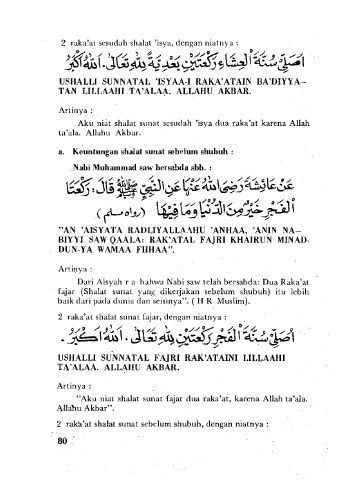 2 raka'at sesudah shalat 'isya, dengan niatnya :
اُصَلِّى سُنَّةَ الْعِشَاءِ رَكْعَتَيْنِ بَعْدِيَّةً لِلّٰهِ تَعَالَى. اَللهُ اَكْبَرُ
USHALLI SUNNATAL 'ISYAA-I RAKA'ATAIN BA'DIYYA–
TAN LILLAAHI TA'ALAA. ALLAHU AKBAR.
Artinya :
Aku niat shalat sunat sesudah 'isya dua raka'at karena Allah
ta'ala. Allahu Akbar.
a. Keuntungan shalat sunat sebelum shubuh :
Nabi Muhammad saw bersabda sbb. :
عَنْ عَائِشَةَ رَضِىَ اللهُ عَنْهَا عَنِ النَّبِيِّ ﷺ قَالَ: رَكْعَتَا
الْفَجْرِ خَيْرٌ مِنَ الدُّنْيَا وَمَا فِيْهَا (رواه مسلم)
"AN 'AISYATA RADLIYALLAAHU 'ANHAA, 'ANIN NA–
BIYYI SAW QAALA: RAK'ATAL FAJRI KHAIRUN MINAD-
DUN-YA WAMAA FIIHAA".
Artinya :
Dari Aisyah r a bahwa Nabi saw telah bersabda: Dua Raka'at
fajar (Shalat sunat yang dikerjakan sebelum shubuh) itu lebih
baik dari pada dunia dan seisinya". ( H R Muslim).
2 raka'at shalat sunat fajar, dengan niatnya :
اُصَلِّى سُنَّةَ الْفَجْرِ رَكْعَتَيْنِ لِلّٰهِ تَعَالَى. اَللهُ اَكْبَرُ.
USHALLI SUNNATAL FAJRI RAK'ATAINI LILLAAHI
TA'ALAA. ALLAHU AKBAR.
Artinya :
"Aku niat shalat sunat fajar dua raka'at, karena Allah ta'ala.
Allahu Akbar".
2 raka'at shalat sunat sebelum shubuh, dengan niatnya :
80